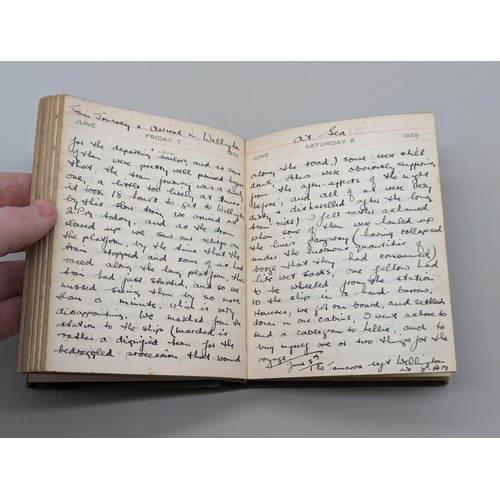 Train Journey & arrival in Wellington
JUNE FRIDAY 7 1929
for the departing sailors, and as some
of them were pretty well primed before
that, the train journey was a lively
one, a little too lively at times.
it took 18 hours to get to Wellington
by this slow train, we arrived at
2 P.M. today, and as the train
slowed up we saw our relief on
the platform, by the time that the
train stopped and some of us had
raced along the long platform, the
train had just started, and so we
missed seeing them by no more
than a minute, which is very
disappointing. We marched from the
station to the ship (marched is
rather a dignified term for the
bedraggled procession that wound
at Sea
JUNE SATURDAY 8 1929
along the road,) some were still
drunk, others were obviously suffering
from the after-effects of the night
before, and all of us were very
dirty & dishevelled after the long
train ride) I felt rather ashamed
when some of them were hauled up
the liners gangway (having collapsed
under the enormous quantities of
booze that they had consumed)
like wet sacks, one fellow had
to be wheeled from the station
to the ship in a hand barrow.
However, we got on board, and settled
down in our cabins, I went ashore to
send a cablegram to Nellie, and to
buy myself one or two things for the
voyage.
June 8th The Tamaroa left Wellington
at 8. AM